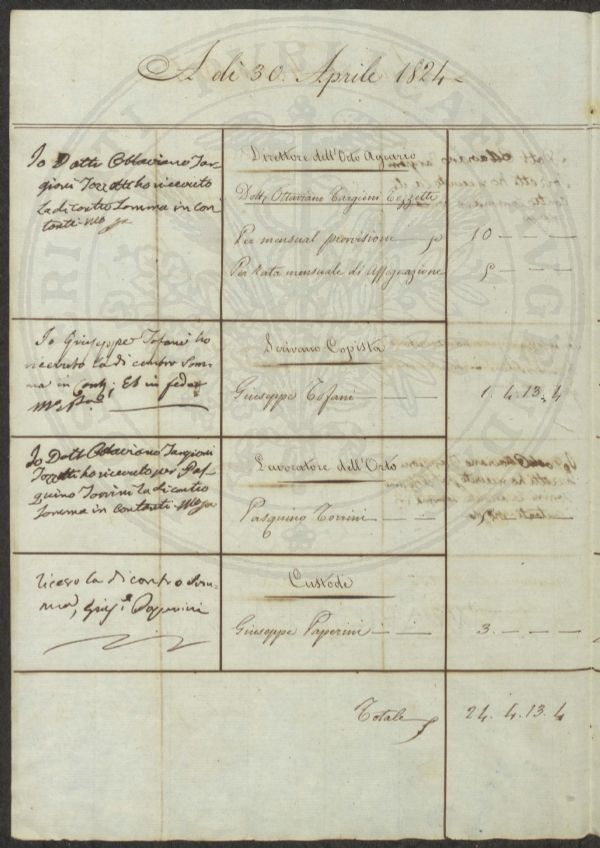 A dì 30. Aprile 1824
Io Dottr Ottaviano Tar-
gioni Tozzetti ho ricevuto
la di contro Somma in con
tanti
Direttore dell'Orto Agrario
Dottr Ottaviano Targioni Tozzetti
Per mensual provisione — 10 — — —
Per Rata mensuale di Assegnazione 5 — — —
Io Giuseppe Tofani ho
ricevuto la di contro Som-
ma in Conti; Et in fede
Mo Pa
Scrivano Copista
Giuseppe Tofani — — 1. 4. 13. 4
Io Dottr Ottaviano Targioni
Tozzetti ho ricevuto per Pas-
quino Torrini la di contro
Somma in Contanti
Lavoratore dell'Orto
Pasquino Torrini — —
ricevo la di contro Som-
ma, Giuse Paperini
Custode
Giuseppe Paperini — — 3. — — —
Totale 24. 4. 13. 4